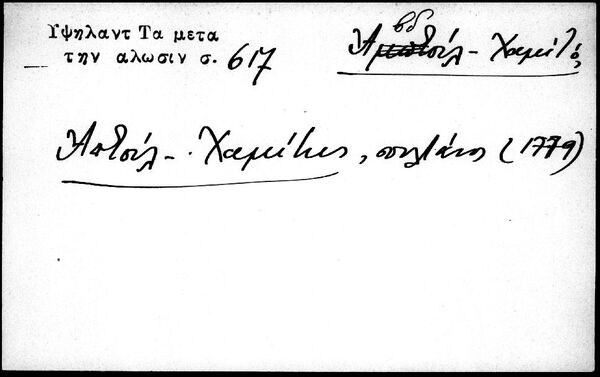 Υψηλαντ Τα μετα
την αλωσιν σ. 617
Αβδούλ - Χαμίτ
Απτούλ - Χαμίτης, σουλτάνος (1779)